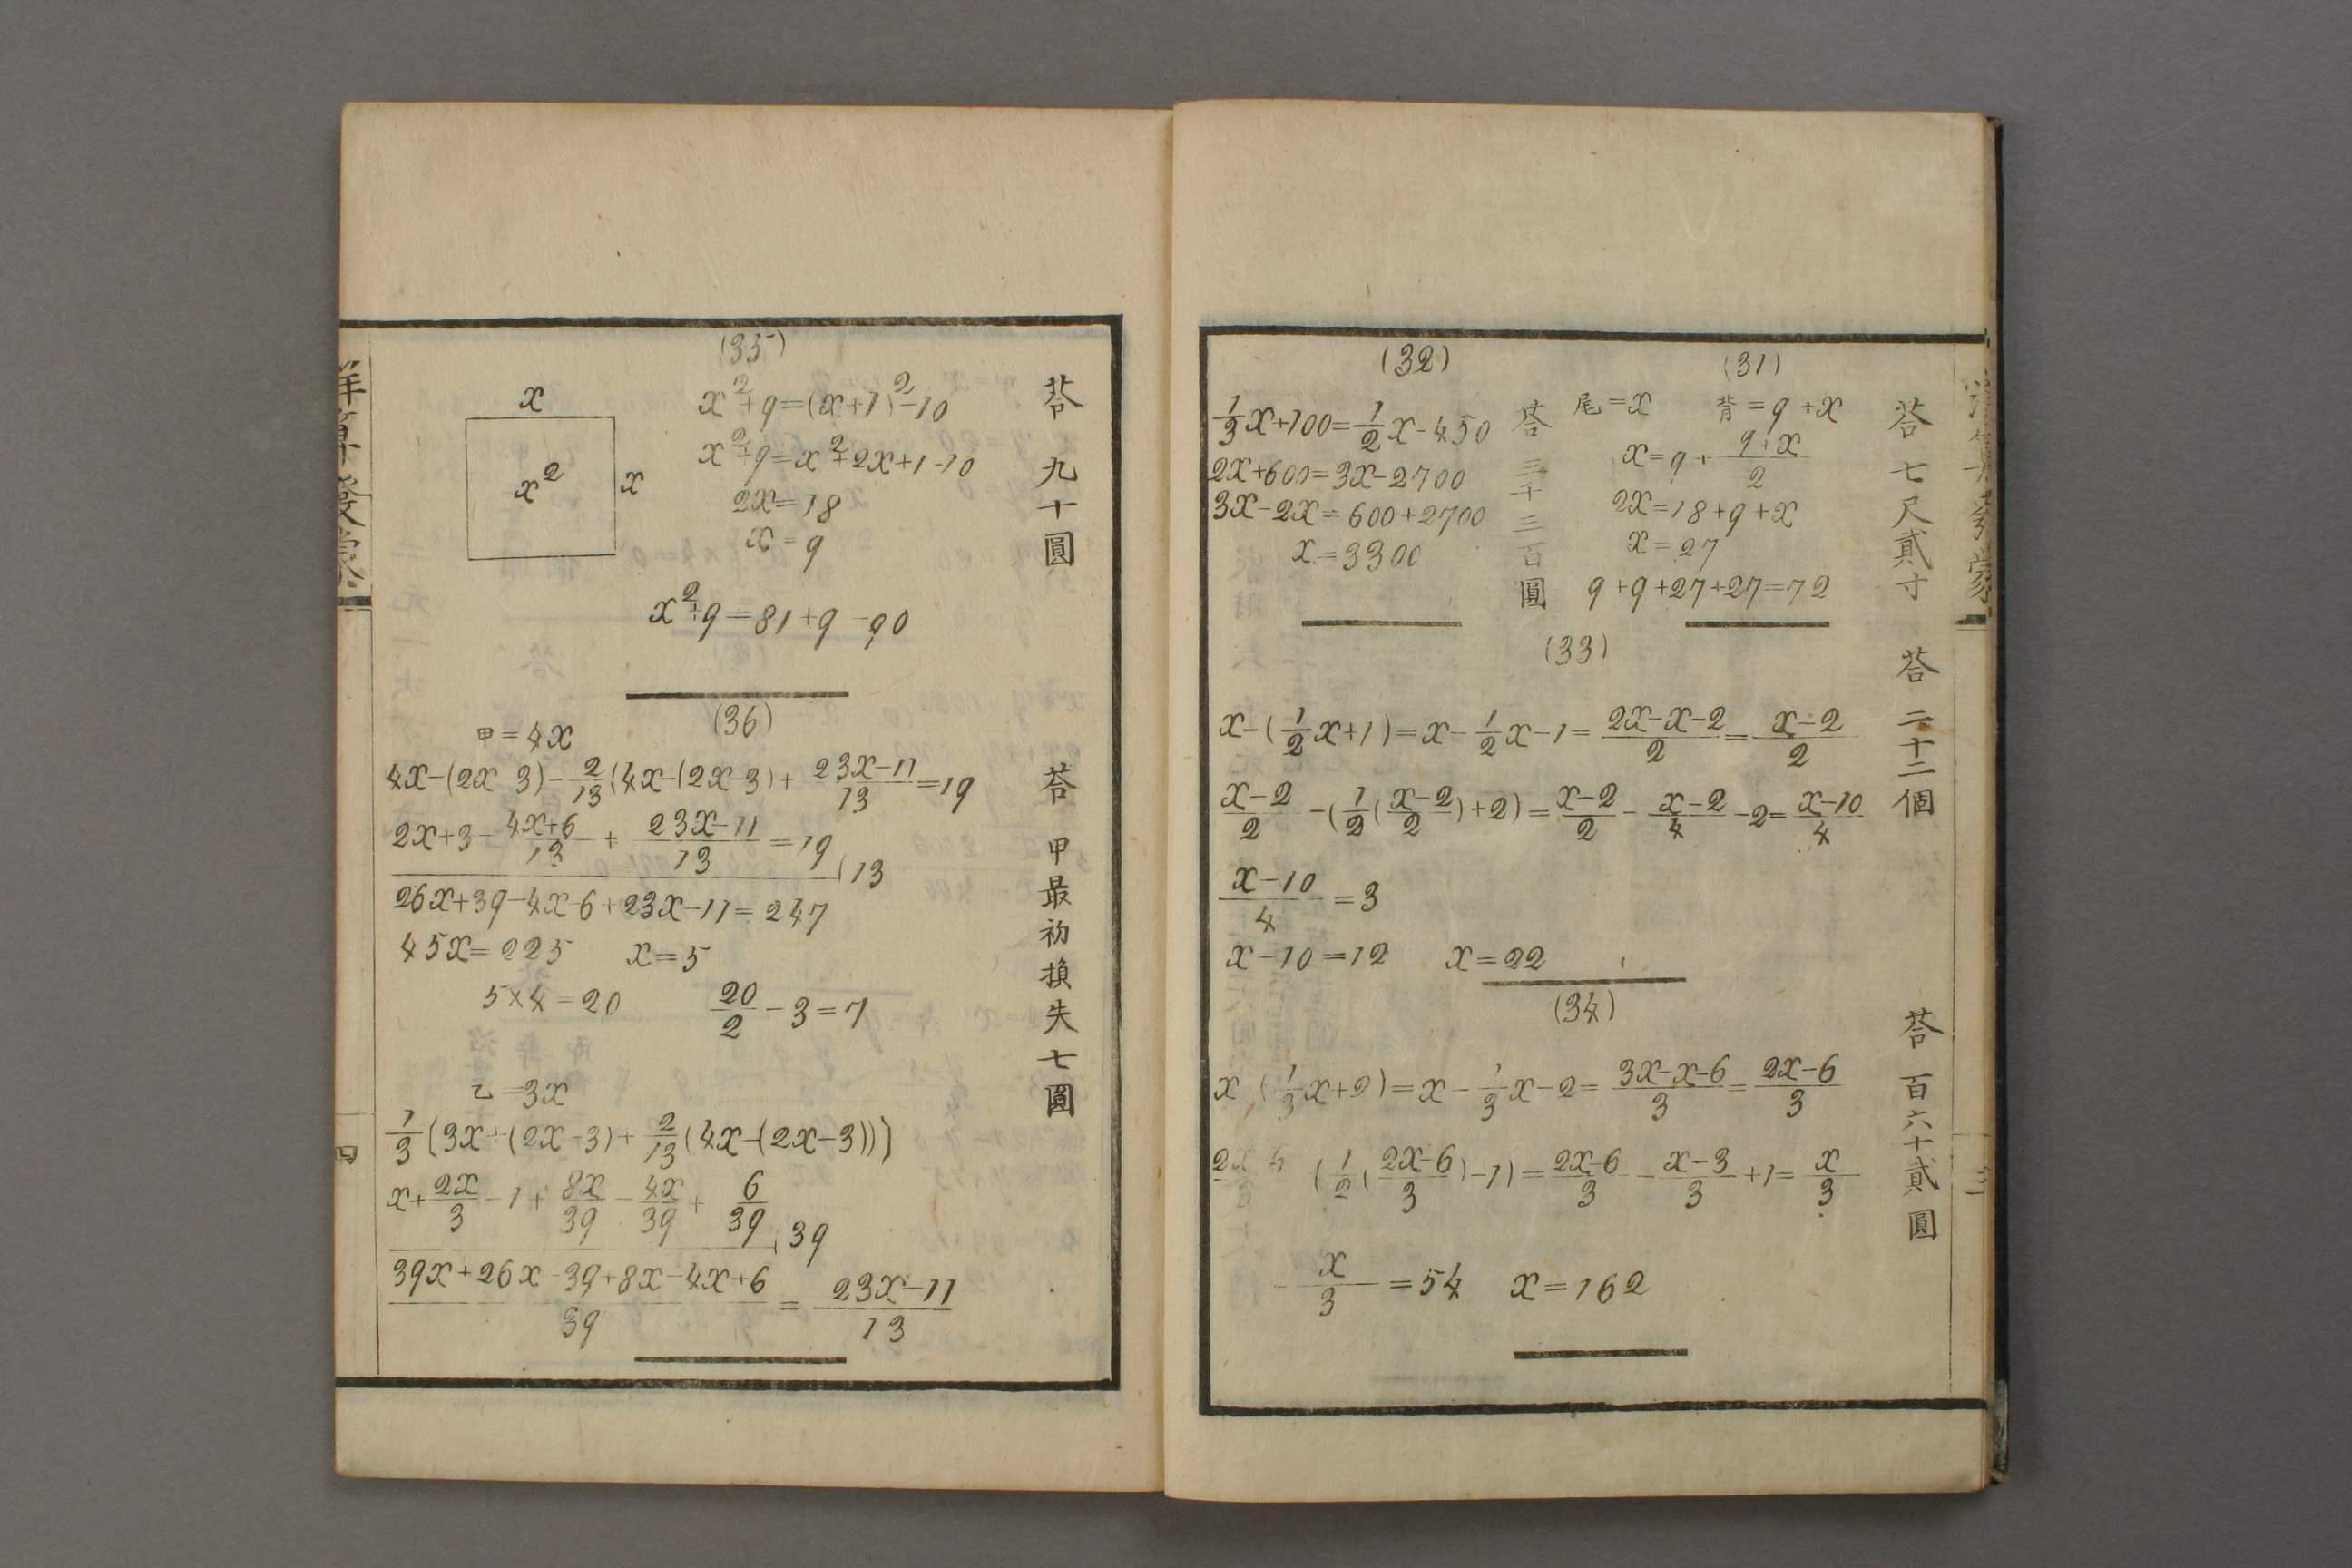 (31)
答 七尺貳寸
尾=x 背=9+x
x=9+(9+x)/2
2x=18+9+x
x=27
9+9+27+27=72
(32)
答 三千三百圓
1/3x+100=1/2x-450
2x+600=3x-2700
3x-2x=600+2700
x=3300
(33)
答 二十二個
x-(1/2x+1)=x-1/2x-1=(2x-x-2)/2=(x-2)/2
(x-2)/2-(1/2((x-2)/2)+2)=(x-2)/2-(x-2)/4-2=(x-10)/4
(x-10)/4=3
x-10=12 x=22
(34)
答 百六十貳圓
x (1/3x+2)=x-1/3x-2=(3x-x-6)/3=(2x-6)/3
(2x 6)/3 (1/2((2x-6)/3)-1)=(2x-6)/3-(x-3)/3+1=x/3
x/3=54 x=162
三
(35)
答 九十圓
x
x²
x
x²+9=(x+1)²-10
x²+9=x²+2x+1-10
2x=18
x=9
x²+9=81+9=90
(36)
答 甲最初損失七圓
甲=4x
4x-(2x 3)-2/13(4x-(2x-3)+(23x-11)/13=19
2x+3-(4x+6)/13+(23x-11)/13=19
(13
26x+39-4x-6+23x-11=247
45x=225 x=5
5×4=20 20/2-3=7
乙=3x
1/3[3x+(2x-3)+2/13(4x-(2x-3))]
x+2x/3-1+8x/39-4x/39+6/39
(39
(39x+26x-39+8x-4x+6)/39=(23x-11)/13
四